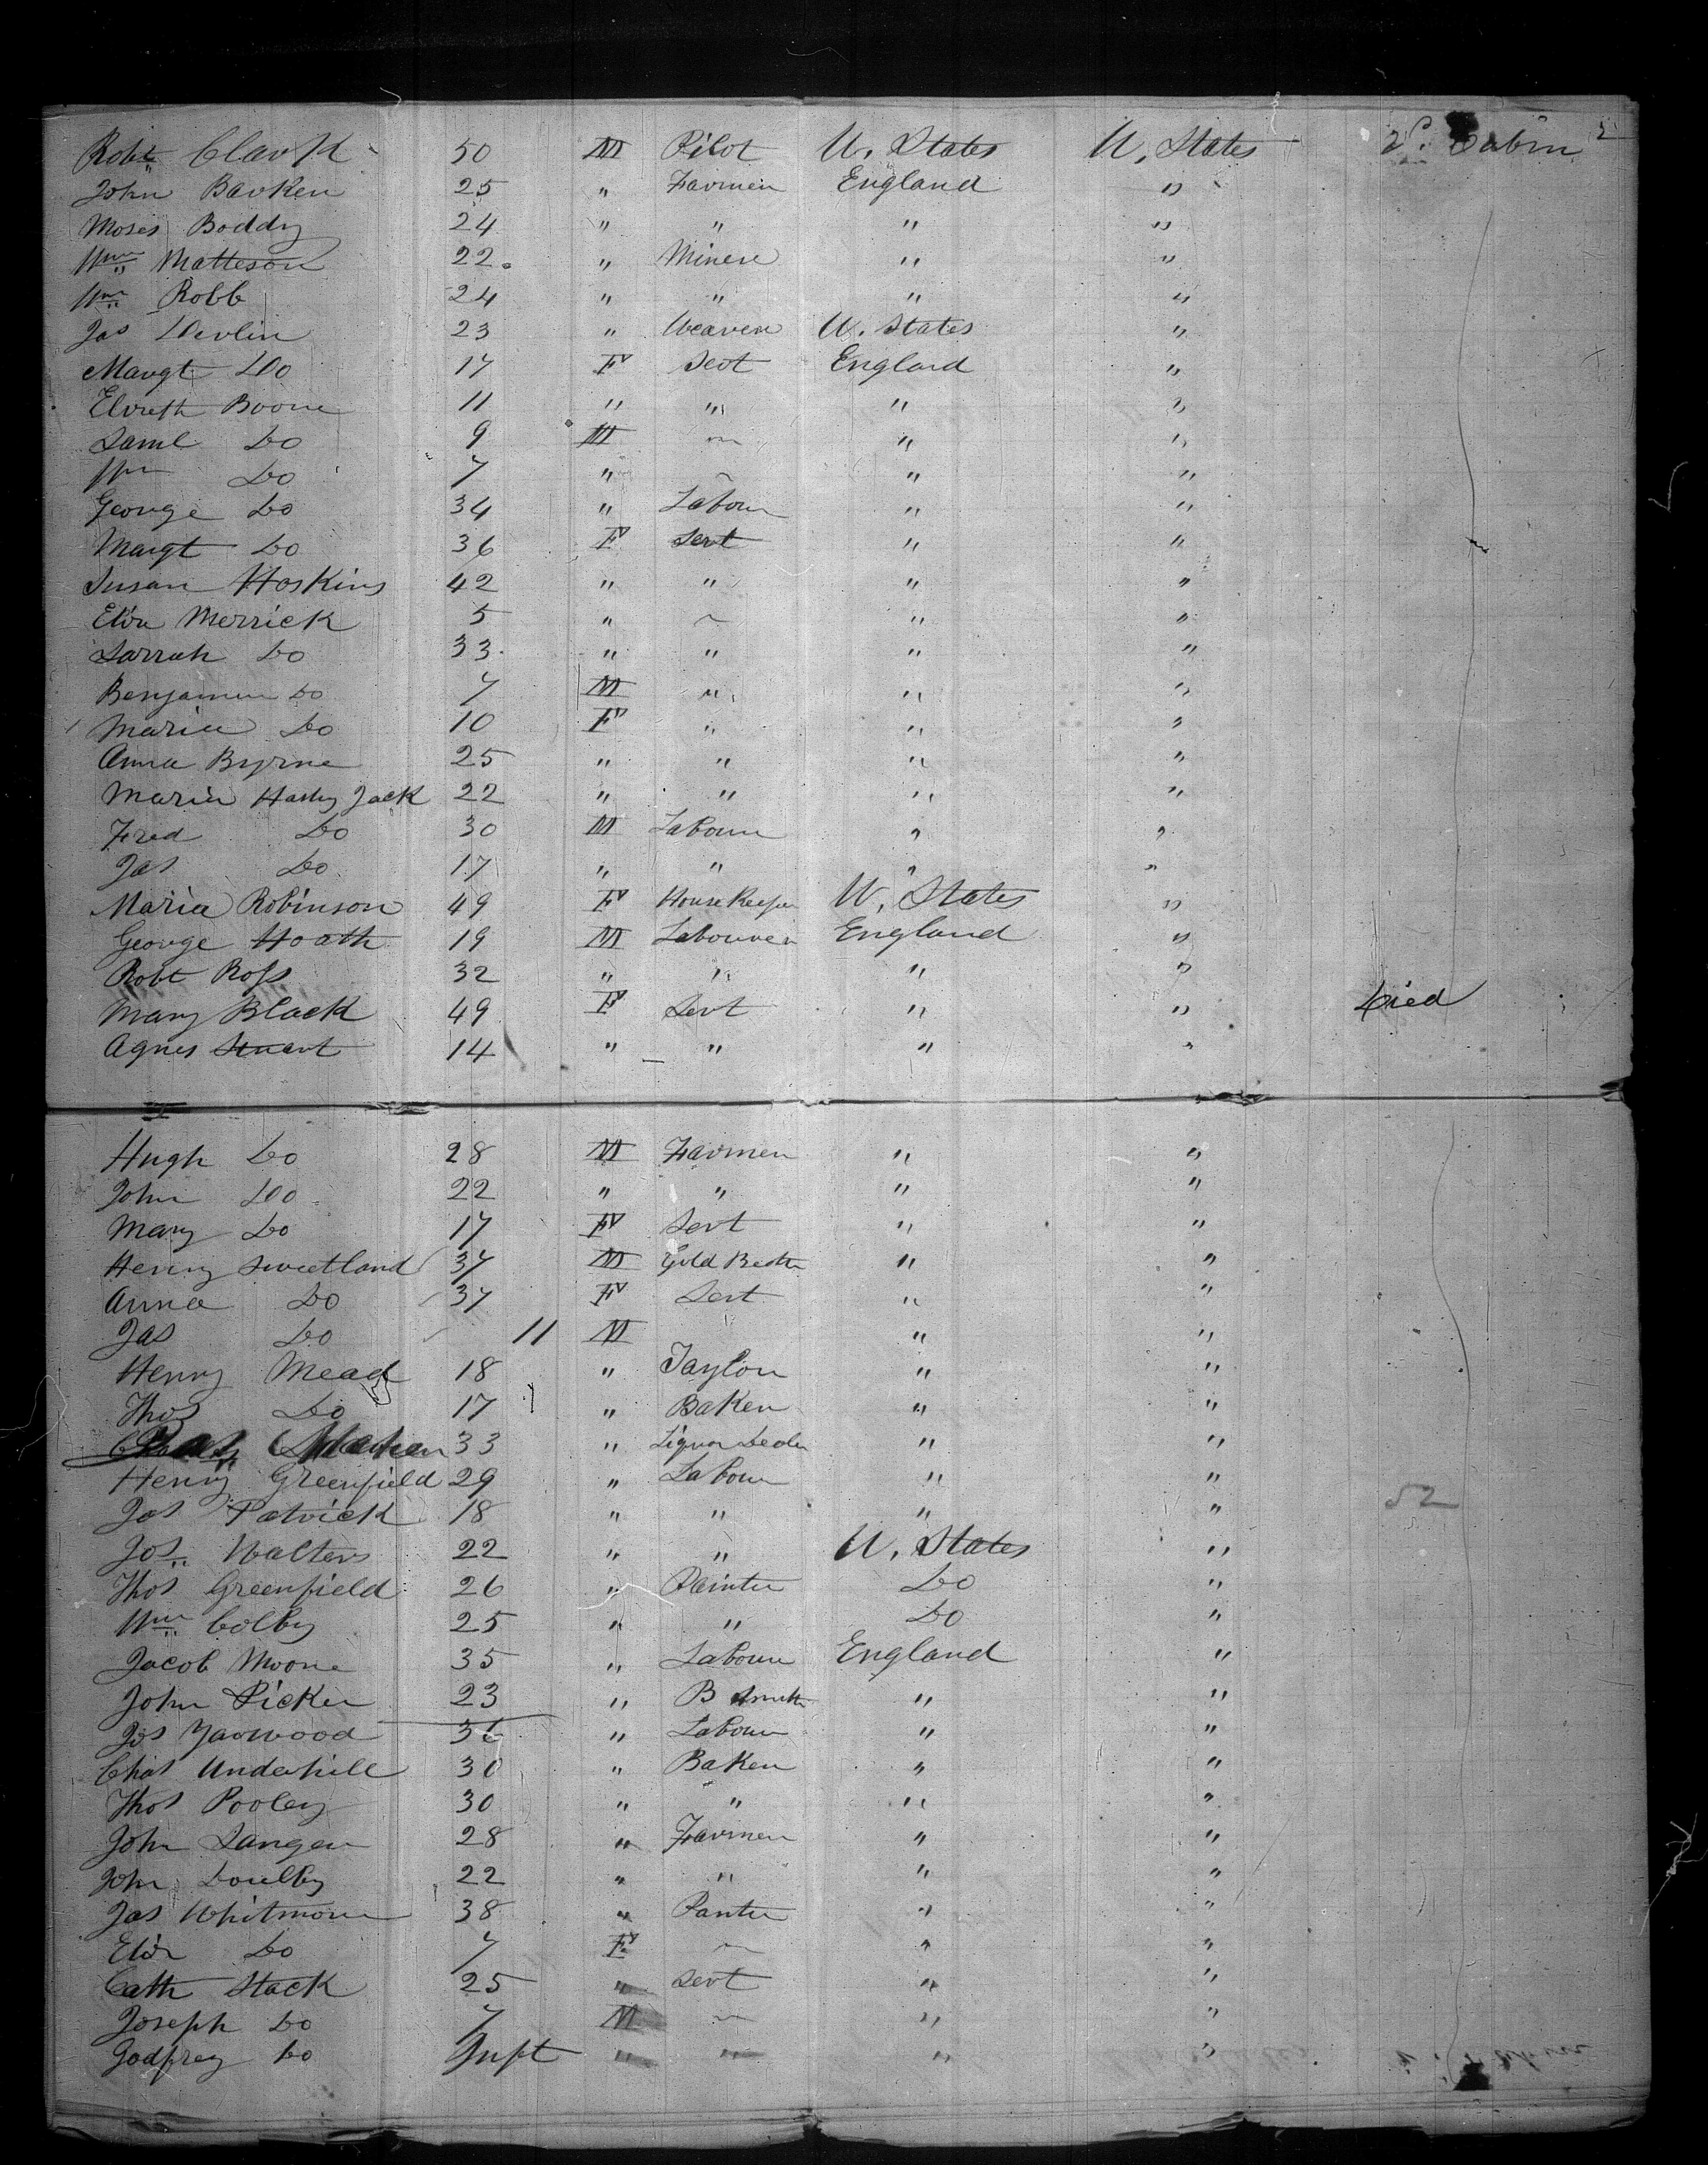 Robt Clark 50 M Pilot U. States U. States 2d. Cabin 2
John Barker 25 " Farmer England "
Moses Boddy 24 " " " "
Wm Matteson 22 " Miner " "
Wm Robb 24 " " " "
Jas Devlin 23 " Weaver U. States "
Margt Do 17 F Sevt England "
Boone 11 " " " "
Saml Do 9 M " " "
Wm Do 7 " ~ " "
George Do 34 " Labour " "
Margt Do 36 F Servt " "
Susan Hoskins 42 " " " "
Eliza Merrick 5 " ~ " "
Sarrah Do 33 " " " "
Benjamin Do 7 M " " "
Maria Do 10 F " " "
Anna Byrne 25 " " " "
Maria Jack 22 " " " "
Fred Do 30 M Labour " "
Jas Do 17 " " " "
Maria Robinson 49 F House Keeper U. States "
George Hoath 19 M Labourer England "
Robt Ross 32 " " " "
Mary Black 49 F Sevt " " Died
Agnes Stuart 14 " " " "
Hugh Do 28 M Farmer " "
John Do 22 " " " "
Mary Do 17 F Sevt " "
Henry Sweetland 37 M Gold Beater " "
Anna Do 37 F Sevt " "
Jas Do 11 M " "
Henry Mead 18 " Taylor " "
Thos Do 17 " Baker " "
33 " Liquor Dealer " "
Henry Greenfield 29 " Labour " "
Jas Patrick 18 " " " " 52
Jos Walters 22 " " U. States "
Thos Greenfield 26 " Painter Do "
Wm Colby 25 " " Do "
Jacob Moore 35 " Labour England "
John Picker 23 " B Smith " "
Jos Yarwood 36 " Labour " "
Chas Underhill 30 " Baker " "
Thos Pooley 30 " " " "
John Sanger 28 " Farmer " "
John Doulby 22 " " " "
Jas Whitmore 38 " Panter " "
Eliza Do 7 F ~ " "
Cath Stack 25 " Sevt " "
Joseph Do 7 M ~ " "
Godfrey Do Inft " " " "